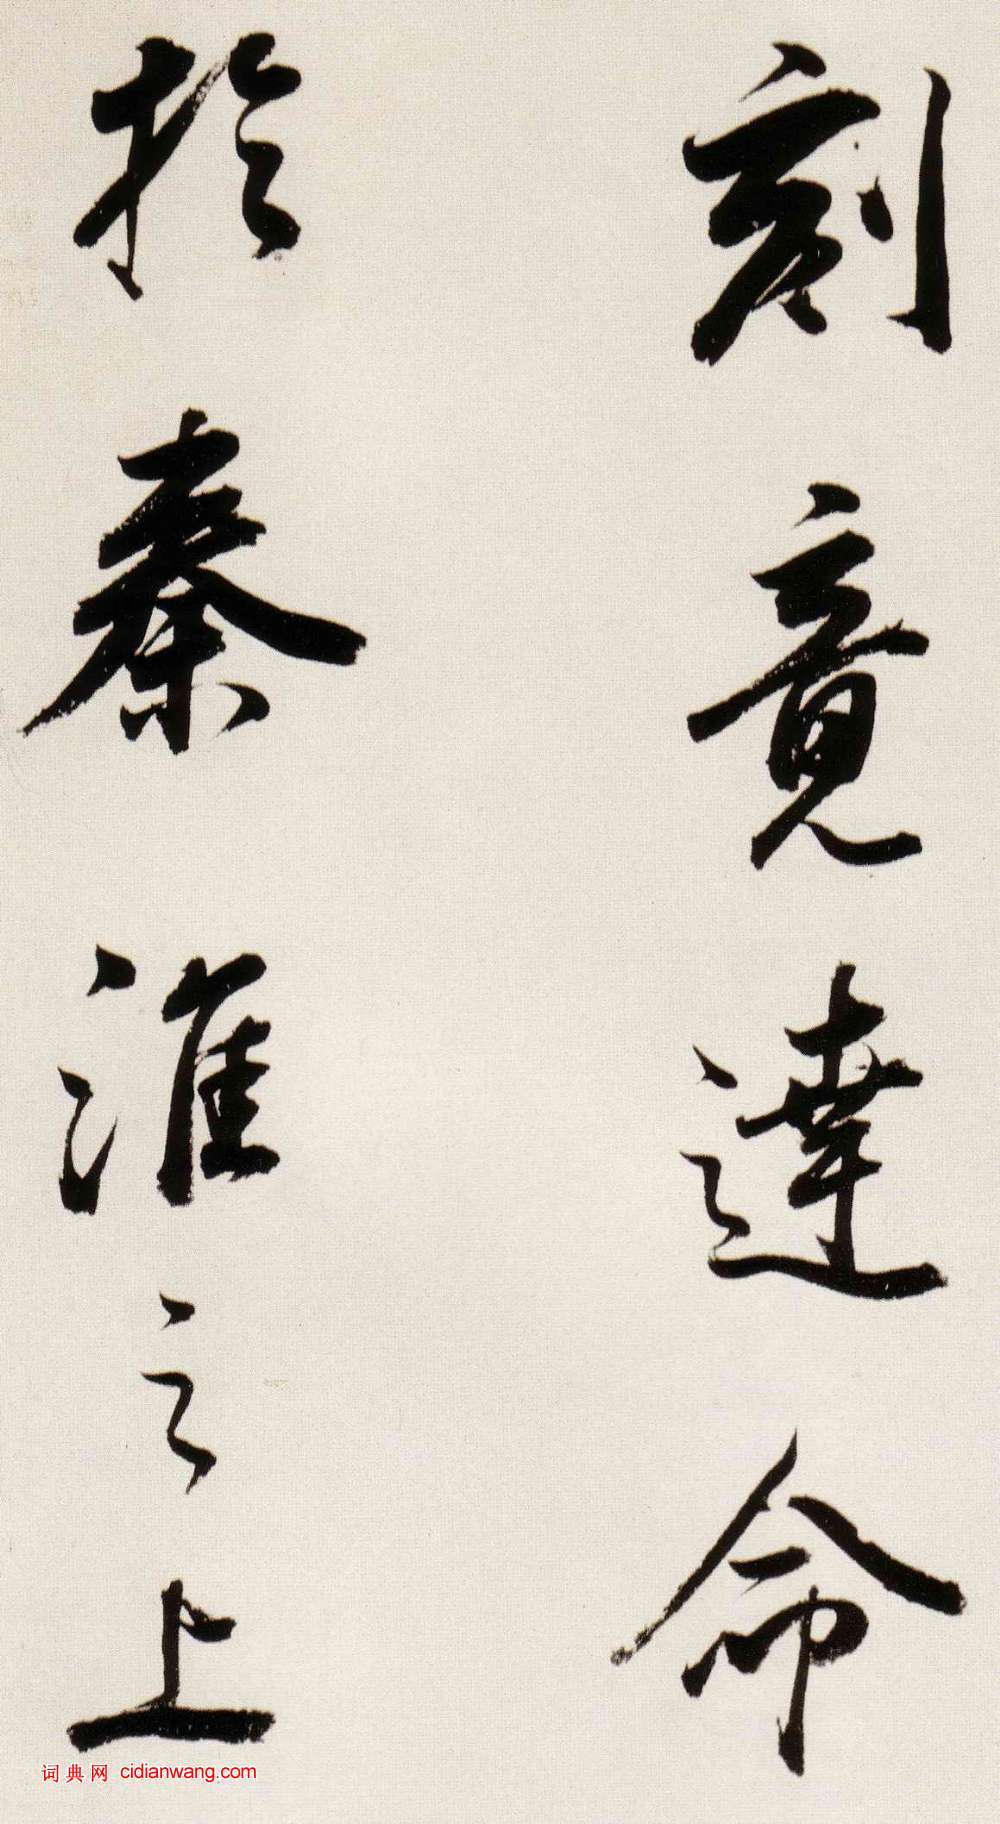 刻竟達命
於秦淮之上
词典网 cidianwang.com